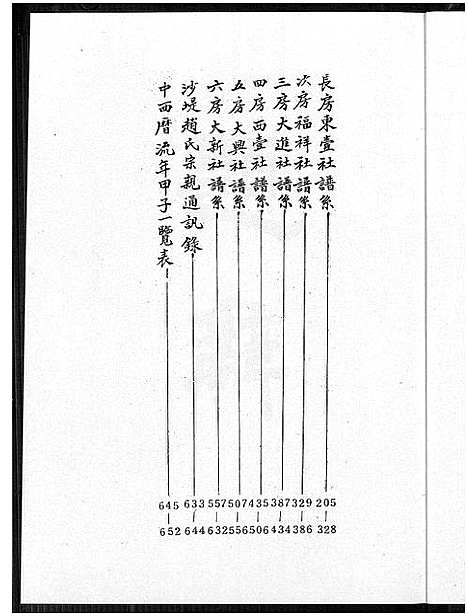 長房東壹社譜系 205—328
次房福祥社譜系 329—386
三房大進社譜系 387—434
四房西壹社譜系 435—506
五房大興社譜系 507—556
六房大新社譜系 557—632
沙堤趙氏宗親通訊錄 633—644
中西曆流年甲子一覽表 645—652